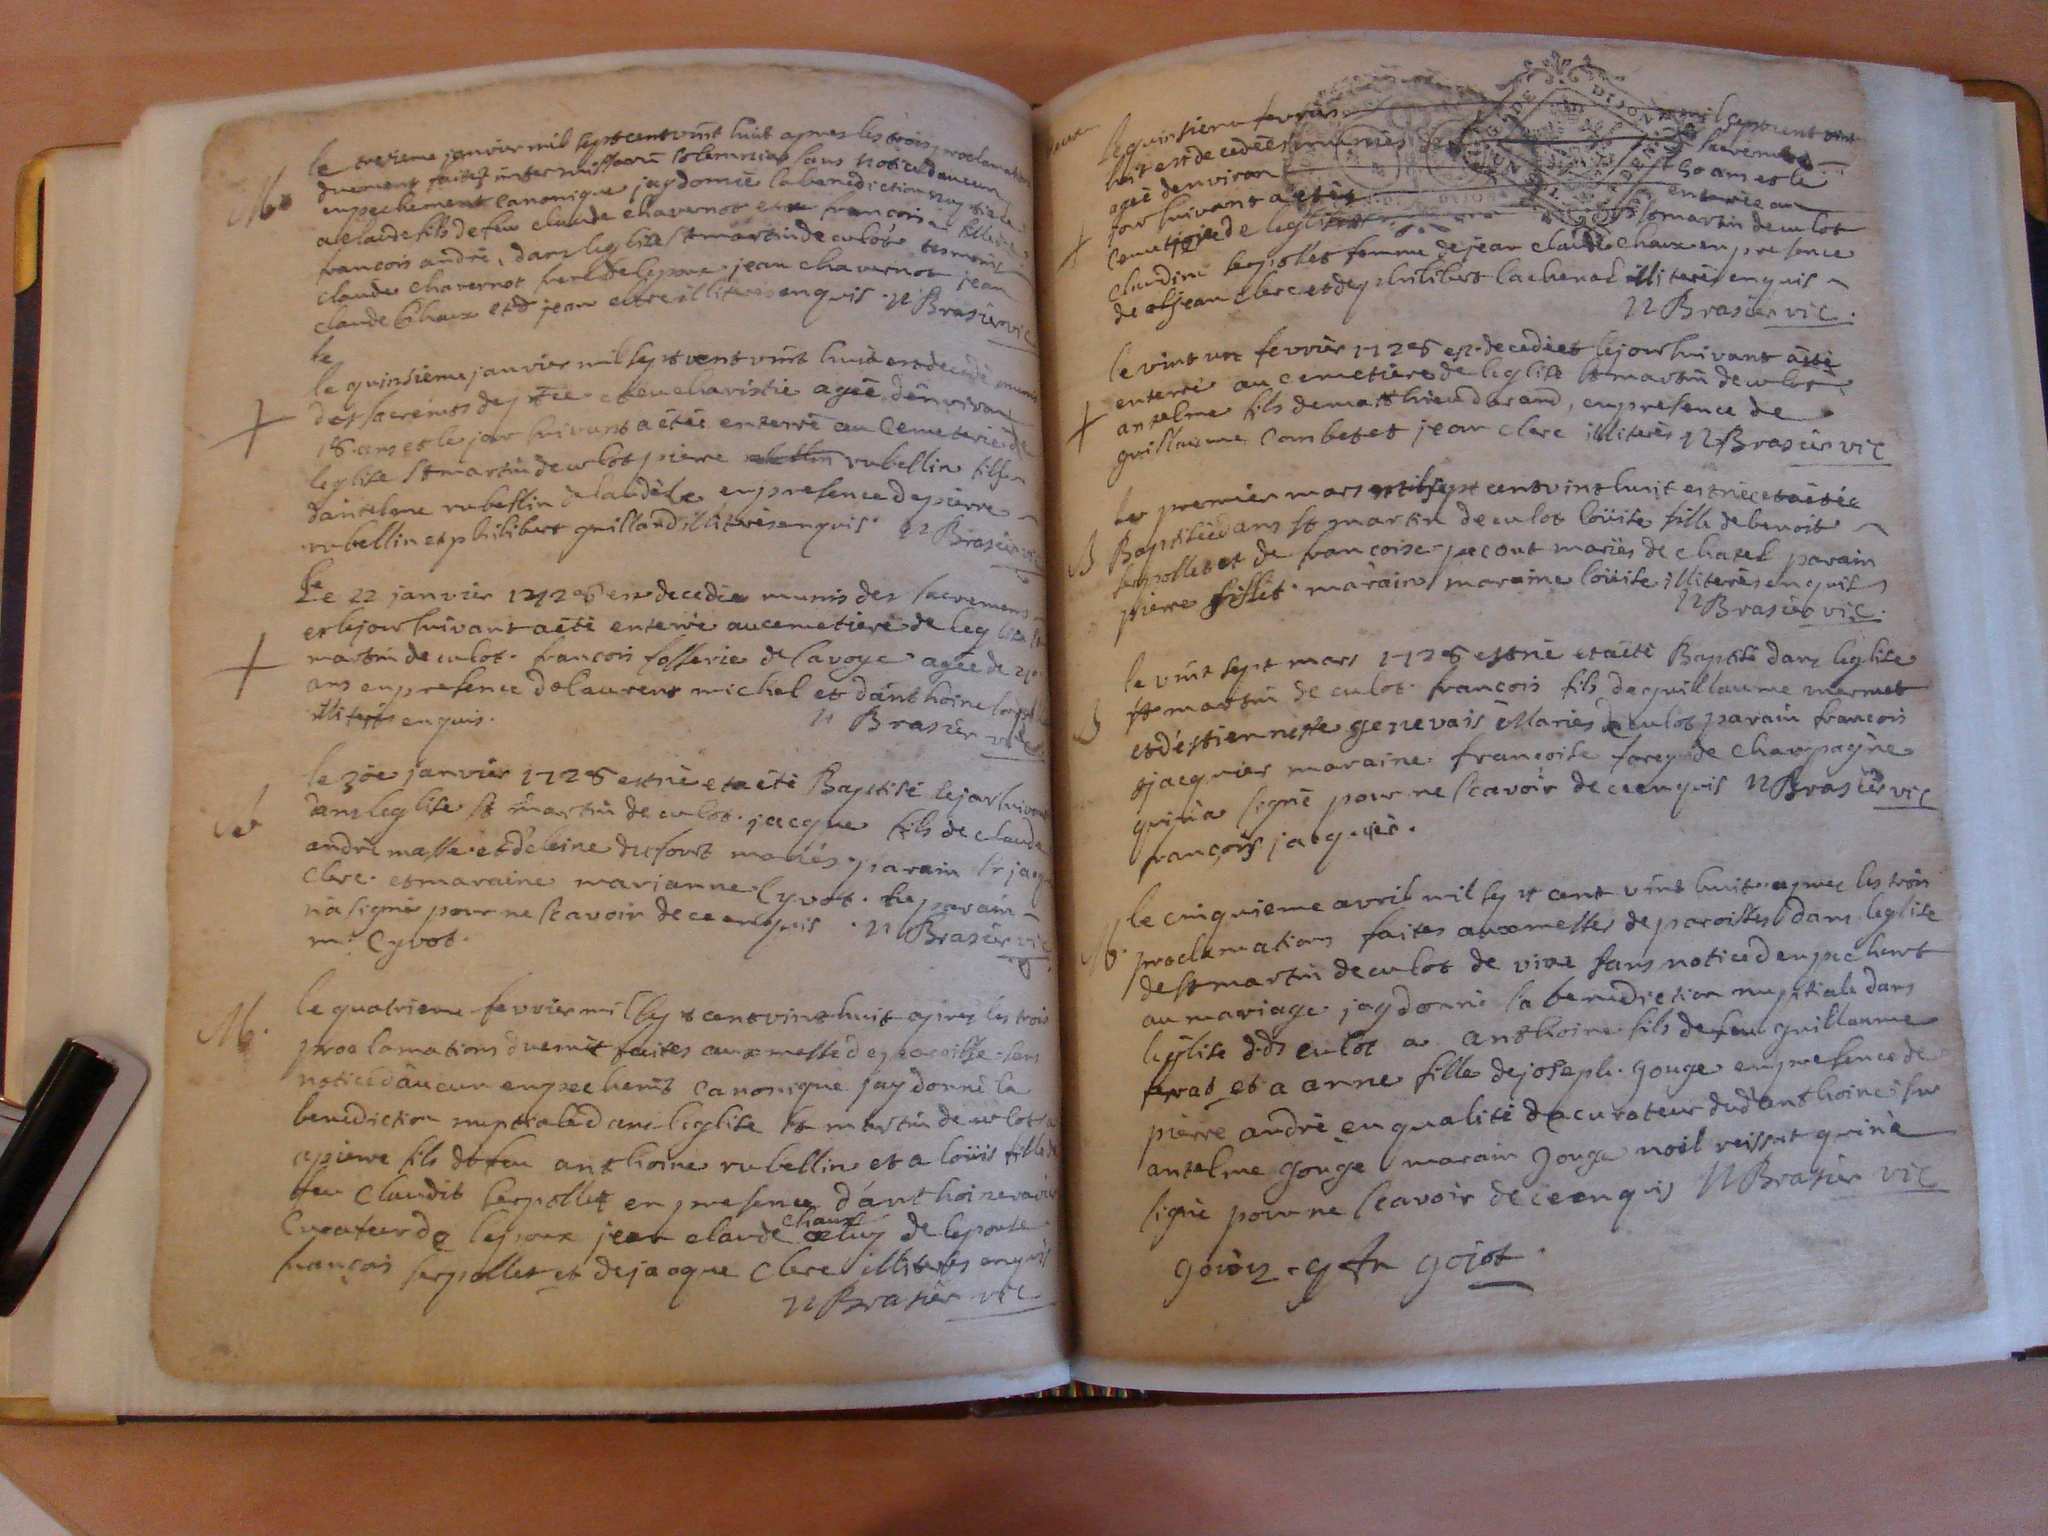 M.
le treizieme janvier mil sept cent vint huit apres les trois proclamations
duement faites inter missarū solemnia sans notice d'aucun
empechement canonique jay donné la benediction nuptiale
a claude fils de feu claude chavernot et a francoise fille de
francois andré, dans leglise st martin de culot temoins
claude chavernot frere de lepoux jean chavernot jean
claude Chaux et jean clerc illiterés enquis. N Brasier vic
le
le quinsieme janvier mil sept cent vint huit est decedé munis
des sacremts de pēce et eucharistie agée denviron
18 ans et le jour suivant a étée enterré au cemetiere de
leglise st martin de culot pierre rubellin fils
dantelme rubellin en presence de pierre
rubellin et philibert guilland illiterés enquis. N Brasier vic
Le 22 janvier 1728 est decedée munis des sacremens
et le jour suivant a été enterré au cemetiere de leglise st
martin de culot. francois de lavoye agée de
ans en presence de laurent michel et danthoine
illiterés enquis. N Brasier vic
le 30e janvier 1728 est né et a été Baptisé le jour suivant
dans leglise st martin de culot. jacque fils de claude
andré masse et deleine dufourt mariés parain sr jacque
clerc et maraine marianne Cyvot. le parain
n'a signé pour ne scavoir de ce enquis. N Brasier vic
m. Cyvot.
M.
le quatrieme fevrier mil sept cent vint huit apres les trois
proclamations duemēt faites aux messe de paroisse sans
notice daucun empechemt canonique jay donné la
benediction nuptiale dans leglise st martin de culot
a pierre fils de feu anthoine rubellin et a loüis fille de
feu claudit serpollet en presence danthoine
Curateur de lepoux jean claude chaux celuy de lepouse
francois serpollet et de jacque Clerc illiterés enquis
N Brasier vic
le quinsieme fevrier mil sept cent vint
huit est decedée munies des sacremens
agée denviron 50 ans et le
jour suivant a étée enterrée au
cemetiere de leglise st martin de culot
claudine serpollet femme de jean claude chaux en presence
de jean clerc et de philibert lachenal illiterés enquis
N Brasier vic.
le vint un fevrier 1728 est decedé et le jour suivant a été
enterré au cemetiere de leglise st martin de culot
antelme fils de matthieu durand, en presence de
guillaume Combet et jean clerc illiterés N Brasier vic
B
le premier mars mil sept cent vint huit est née et a étée
Baptisée dans st martin de culot loüise fille de benoit
serpollet et de francoise pecout mariés de chatel parain
pierre fillit maraine loüise illiterés enquis
N Brasier vic.
B
le vint sept mars 1728 est né et a été Baptisé dans leglise
st martin de culot. francois fils de guillaume mermet
et destiennette genevais Mariés de culot parain francois
jacquier maraine francoise de Champagne
qui n'a signé pour ne scavoir de ce enquis N Brasier vic
francois jacquier.
M.
le cinquieme avril mil sept cent vint huit apres les trois
proclamations faites aux messes de paroisses dans leglise
de st martin de culot de vive sans notice dempechemt
au mariage jay donné la benediction nuptiale dans
leglise dud culot a anthoine fils de feu guillaume
et a anne fille de joseph gouge en presence de
pierre andré en qualité de curateur dud anthoine sr
antelme gouge marain gouge noël reissat qui n'a
signé pour ne scavoir de ce enquis N Brasier vic
gojot.